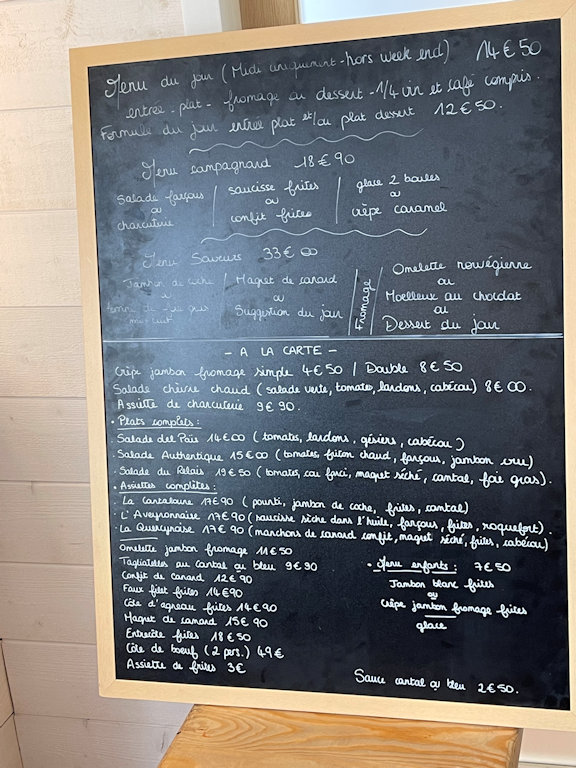 Menu du jour (Midi uniquement - hors week end) 14€50
entrée - plat - fromage ou dessert - 1/4 vin et café compris.
Formule du jour entrée plat et/ou plat dessert 12€50.
Menu campagnard 18€90
Salade farçous | saucisse frites | glace 2 boules
ou | ou | ou
charcuterie | confit frites | crêpe caramel
Menu Saveurs 33€00
Jambon de coche | Magret de canard | Fromage | Omelette norvégienne
ou | ou | ou
terrine de foie gras mi-cuit | Suggestion du jour | Moelleux au chocolat
ou
Dessert du jour
- A LA CARTE -
Crêpe jambon fromage simple 4€50 | Double 8€50
Salade chèvre chaud (salade verte, tomates, lardons, cabécou) 8€00.
Assiette de charcuterie 9€90.
• Plats complets :
• Salade del Païs 14€00 (tomates, lardons, gésiers, cabécou)
• Salade Authentique 15€00 (tomates, friton chaud, farçous, jambon cru)
• Salade du Relais 19€50 (tomates, cou farci, magret séché, cantal, foie gras).
• Assiettes complètes :
• La Cantaloune 17€90 (pounti, jambon de coche, frites, cantal)
• L'Aveyronnaise 17€90 (saucisse sèche dans l'huile, farçous, frites, roquefort).
• La Quercynoise 17€90 (manchons de canard confit, magret séché, frites, cabécou)
Omelette jambon fromage 11€50
Tagliatelles au cantal ou bleu 9€90
Confit de canard 12€90
Faux filet frites 14€90
Côte d'agneau frites 14€90
Magret de canard 15€90
Entrecôte frites 18€50
Côte de boeuf (2 pers.) 49€
Assiette de frites 3€
• Menu enfants : 7€50
Jambon blanc frites
ou
Crêpe jambon fromage frites
glace
Sauce cantal ou bleu 2€50.